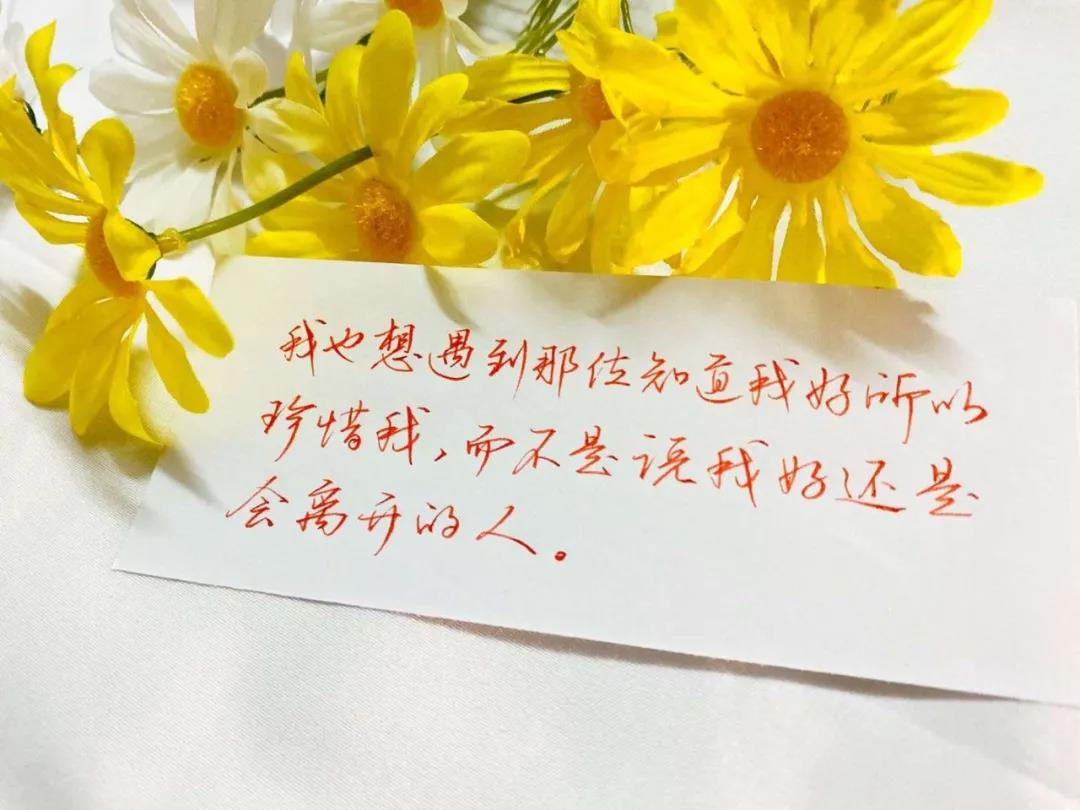 我也想遇到那位知道我好所以
珍惜我，而不是说我好还是
会离开的人。